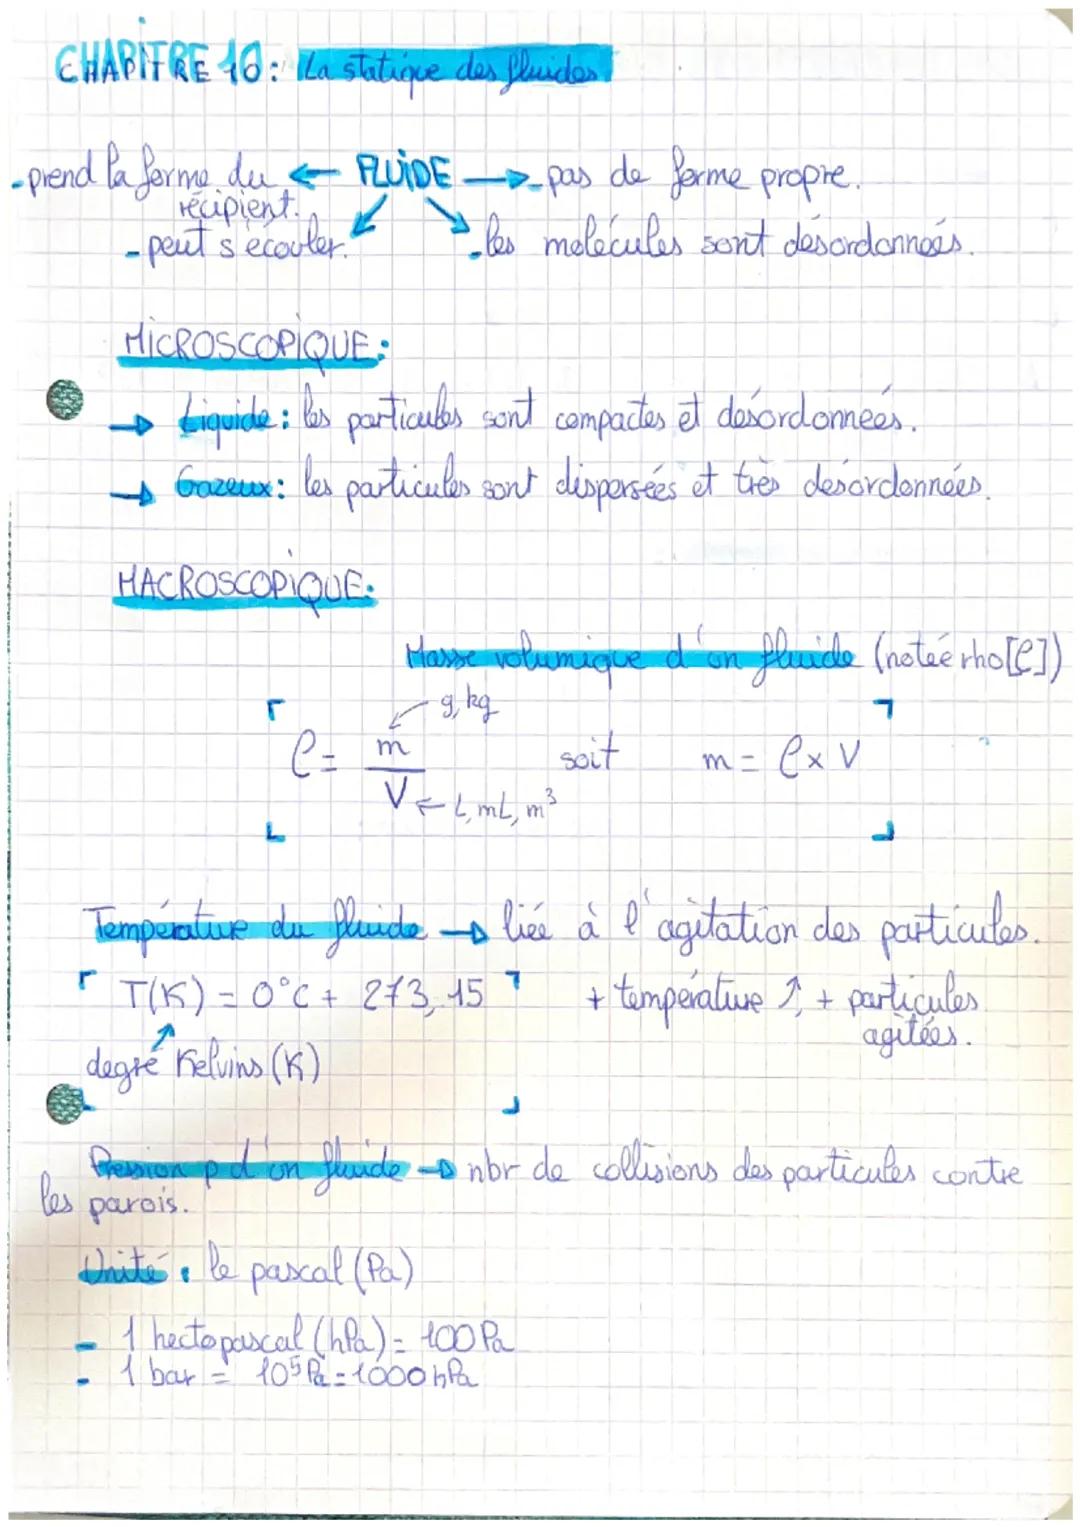 CHAPITRE 10 : La statique des fluides
- prend la forme du récipient. ← FLUIDE → - pas de forme propre.
- peut s'écouler. - les molécules sont désordonnées.
MICROSCOPIQUE :
→ Liquide : les particules sont compactes et désordonnées.
→ Gazeux : les particules sont dispersées et très désordonnées.
MACROSCOPIQUE :
Masse volumique d'un fluide (notée rho [ρ])
g, kg
ρ = m / V soit m = ρ x V
← L, mL, m³
Température du fluide → liée à l'agitation des particules.
T(K) = 0°C + 273,15 + température ↑, + particules agitées.
degré Kelvins (K)
Pression p d'un fluide → nbr de collisions des particules contre
les parois.
Unité : le pascal (Pa)
- 1 hectopascal (hPa) = 100 Pa
- 1 bar = 10⁵ Pa = 1000 hPa